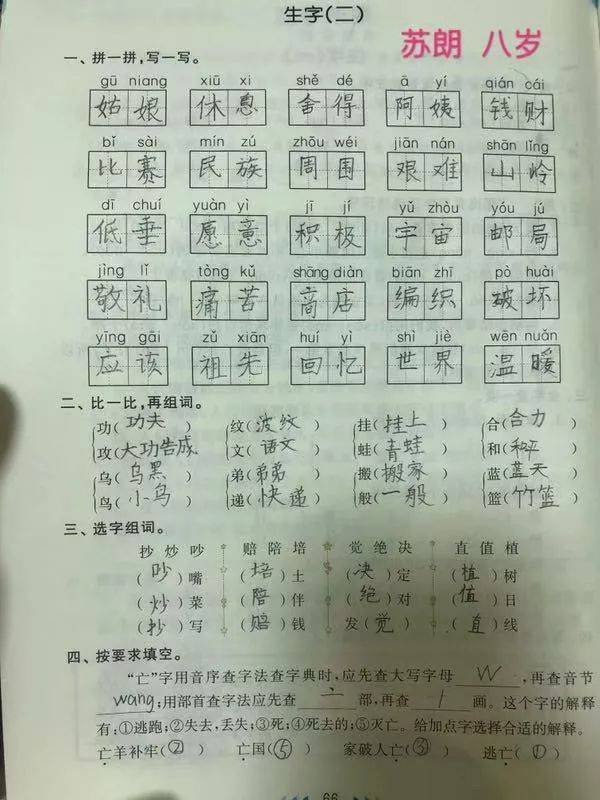 生字(二)
苏朗 八岁
一、拼一拼,写一写。
gū niang xiū xi shě dé ā yí qián cái
姑娘 休息 舍得 阿姨 钱财
bǐ sài mín zú zhōu wéi jiān nán shān lǐng
比赛 民族 周围 艰难 山岭
dī chuí yuàn yì jī jí yǔ zhòu yóu jú
低垂 愿意 积极 宇宙 邮局
jìng lǐ tòng kǔ shāng diàn biān zhī pò huài
敬礼 痛苦 商店 编织 破坏
yīng gāi zǔ xiān huí yì shì jiè wēn nuǎn
应该 祖先 回忆 世界 温暖
二、比一比,再组词。
功(功夫) 纹(波纹) 挂(挂上) 合(合力)
攻(大功告成) 文(语文) 蛙(青蛙) 和(和平)
乌(乌黑) 弟(弟弟) 搬(搬家) 蓝(蓝天)
鸟(小鸟) 递(快递) 般(一般) 篮(竹篮)
三、选字组词。
抄 炒 吵 赔 陪 培 觉 绝 决 直 值 植
(吵)嘴 (培)土 (决)定 (植)树
(炒)菜 (陪)伴 (绝)对 (值)日
(抄)写 (赔)钱 发(觉) (直)线
四、按要求填空。
“亡”字用音序查字法查字典时,应先查大写字母 W ,再查音节
wang;用部首查字法应先查 亠 部,再查 1 画。这个字的解释
有:①逃跑;②失去,丢失;③死;④死去的;⑤灭亡。给加点字选择合适的解释。
亡羊补牢(②) 亡国(⑤) 家破人亡(③) 逃亡(①)
66